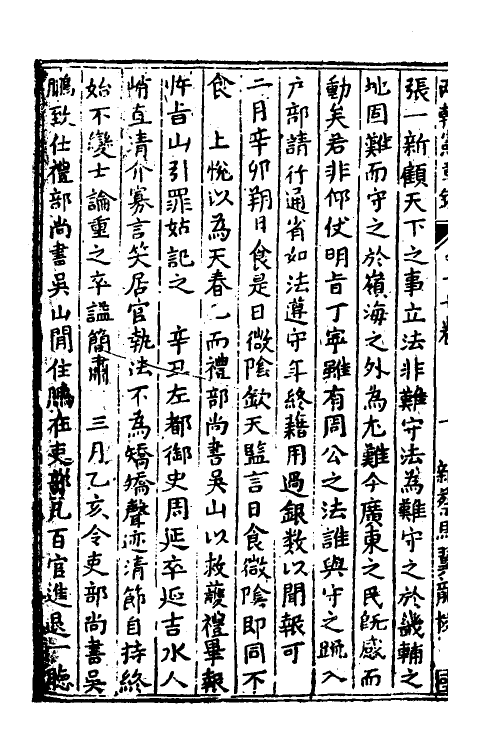 兩朝憲章錄 卷 一
張一新顧天下之事立法非難守法為難守之於畿輔之
地固難而守之於嶺海之外為尤難今廣東之民旣感而
動矣君非仰仗明旨丁寧雖有周公之法誰與守之疏入
戶部請行通省如法遵守年終藉用過銀數以聞報可
二月辛卯朔日食是日微陰欽天監言日食微陰即同不
食 上悅以為天眷已而禮部尚書吳山以救護禮畢報
忤旨山引罪姑記之 辛丑左都御史周延卒延吉水人
悄直清介寡言笑居官執法不為矯矯聲迹清節自持終
始不變士論重之卒謚簡肅 三月乙亥令吏部尚書吳
鵬致仕禮部尚書吳山閒住鵬在吏部凡百官進退一聽